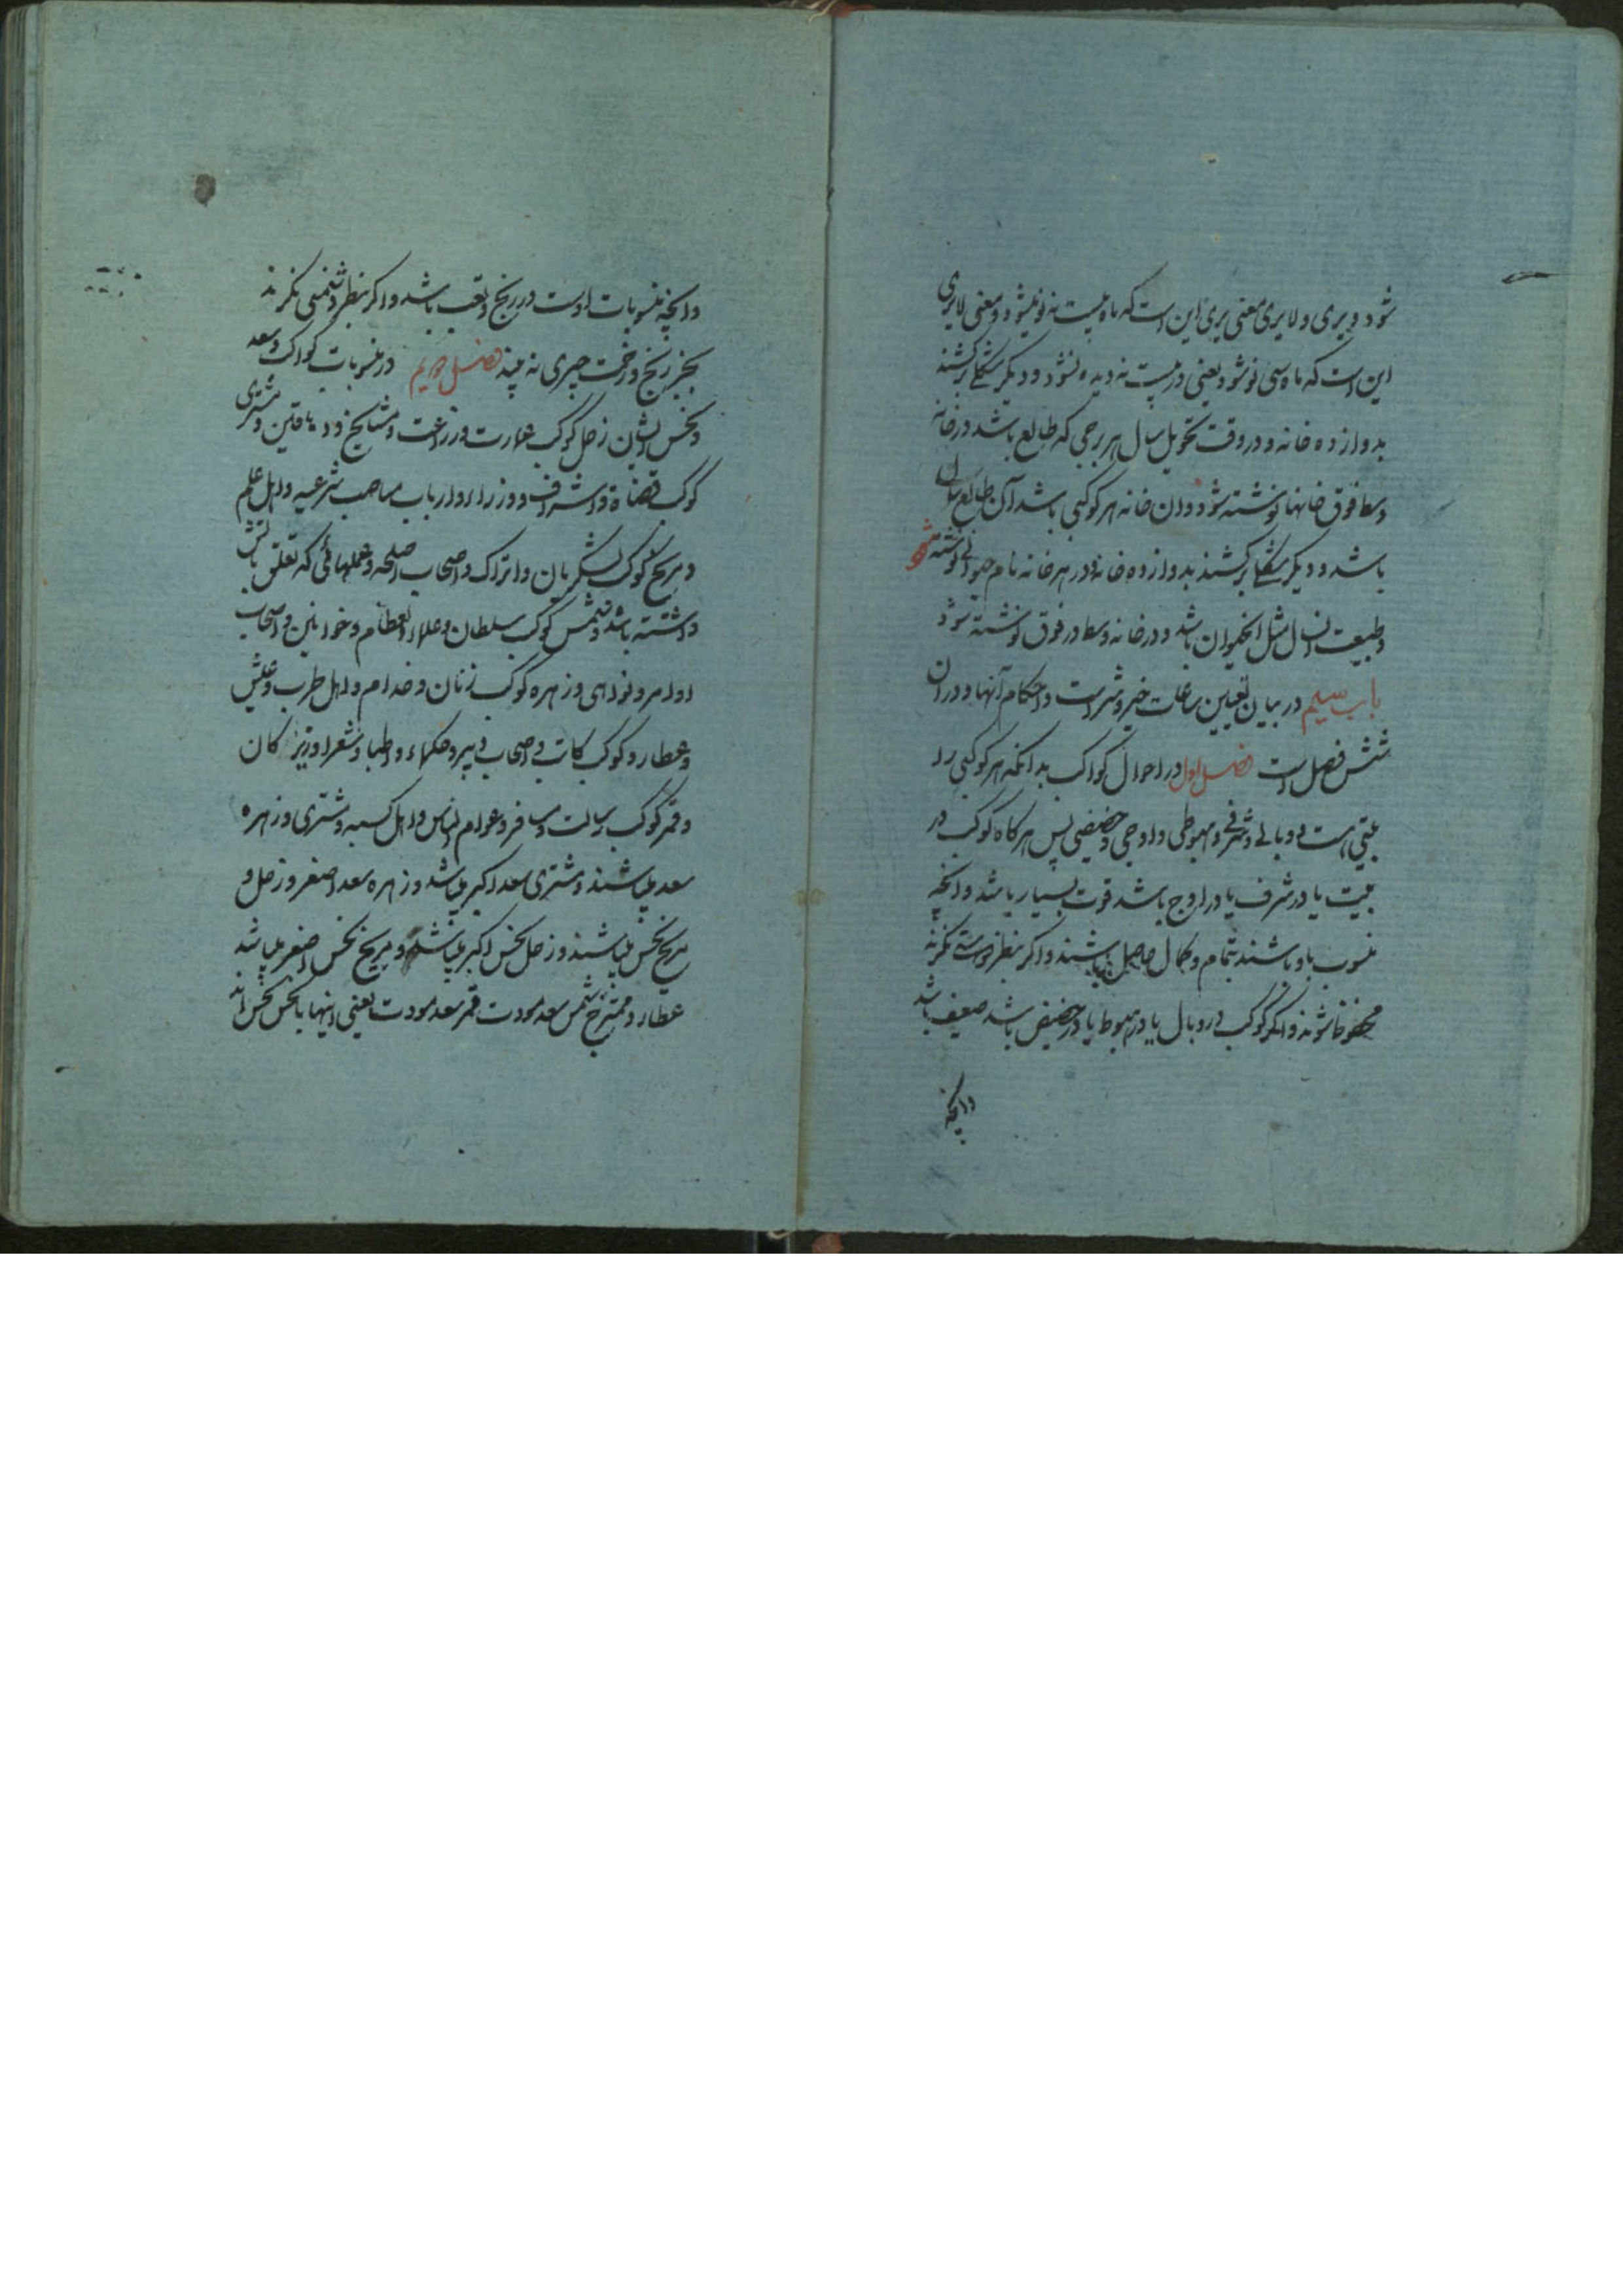 شود و یری و لایری معنی یری این است که ماه بیست نه نو میشود و معنی لایری
این است که ماه سی نو شود یعنی در بیست نه دیده نشود و دیگر شکلی برکشند
بدوازده خانه و در وقت تحویل سال هر برجی که طالع باشد در خانه
وسط فوق خانها نوشته شود و ان خانه هر کوکبی باشد آن طالع سال
باشد و دیگر شکلی برکشند بدوازده خانه و در هر خانه نام حیوانی نوشته شود
و طبیعت انسال مثل انحیوان باشد و در خانه وسط در فوق نوشته شود
باب سیم در بیان تعیین ساعات خیر و شر است و احکام آنها و در ان
شش فصل است فصل اول در احوال کواکب بدانکه هر کوکبی را
بیتی است و وبالی و شرفی و هبوطی و اوجی و حضیضی پس هرکاه کوکب در
بیت یا در شرف یا در اوج باشد قوت بسیار باشد و انچه
منسوب باو باشند بتمام و کمال حاصل باشند و اکر بنظر دوستی نکرند
محظوظ شوند و اکر کوکب در وبال یا در هبوط یا در حضیض باشد ضعیف باشد
وانچه
وانچه منسوبات اوست در رنج و تعب باشد و اکر بنظر دشمنی نکرند
بجز رنج و زحمت چیزی نه بیند فصل دویم در منسوبات کواکب و سعد
و نحس ایشان زحل کوکب عمارت و زراعت و مشایخ و دهاقین و مشتری
کوکب قضاة و اشراف و وزراء و ارباب مناصب شرعیه و اهل علم
و مریخ کوکب لشکریان و اتراک و اصحاب اسلحه و عملهائی که تعلق باتش
داشته باشد و شمس کوکب سلطان و علماء العظام و خوانین و اصحاب
اوامر و نواهی و زهره کوکب زنان و خدام و اهل طرب و عیش
و عطارد کوکب کاتب و اصحاب تدبیر و حکماء و اطبا و شعرا و زیرکان
و قمر کوکب رسالت و مسافر و عوام الناس و اهل کسبه و مشتری و زهره
سعد میباشند و مشتری سعد اکبر میباشد و زهره سعد اصغر و زحل و
مریخ نحس میباشند و زحل نحس اکبر میباشد و مریخ نحس اصغر میباشد
عطارد ممتزج شمس سعد مودت قمر سعد مودت یعنی اینها با نحس نحس اند